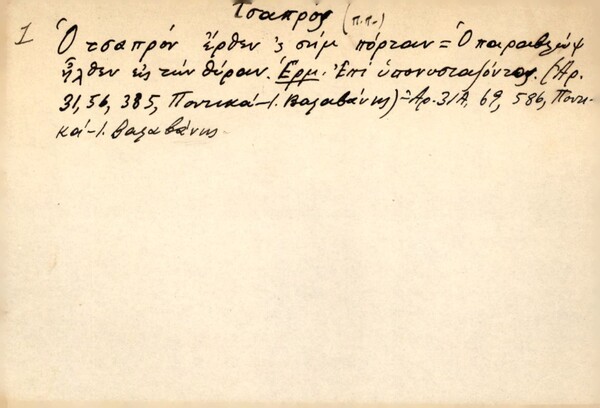 Τσαπρος (π.π.)
1 Ὁ τσαπρόν ἔρθεν 'ς σήμ πόρταν = Ὁ παραβλώψ
ἦλθεν εἰς τήν θύραν. Ἑρμ. Ἐπί ὑπονυστάζοντος. (Ἀρ.
31, 56, 385, Ποντικά - Ι. Βαλαβάνης) = Ἀρ. 31Α, 69, 586, Ποντι-
κά - Ι. Βαλαβάνης.